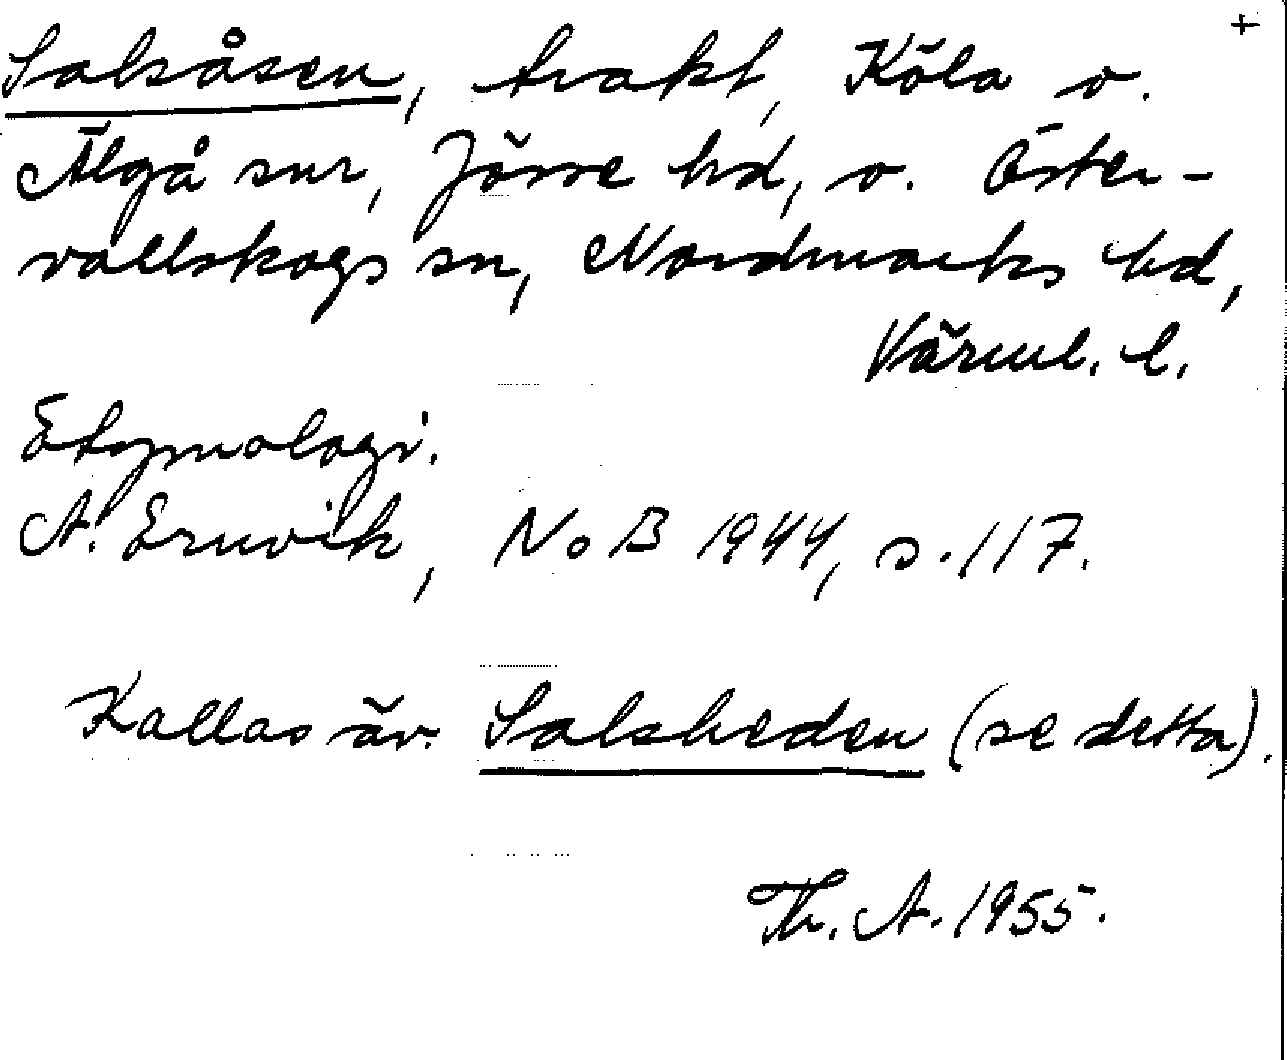 +
Salsåsen, trakt, Köla o.
Älgå snr, Jösse hd, o. Öster-
vallskogs sn, Nordmarks hd,
Värml. l.
Etymologi.
A. Ernvik, NoB 1944, s. 117.
Kallas äv. Salsheden (se detta).
Th. A. 1955.